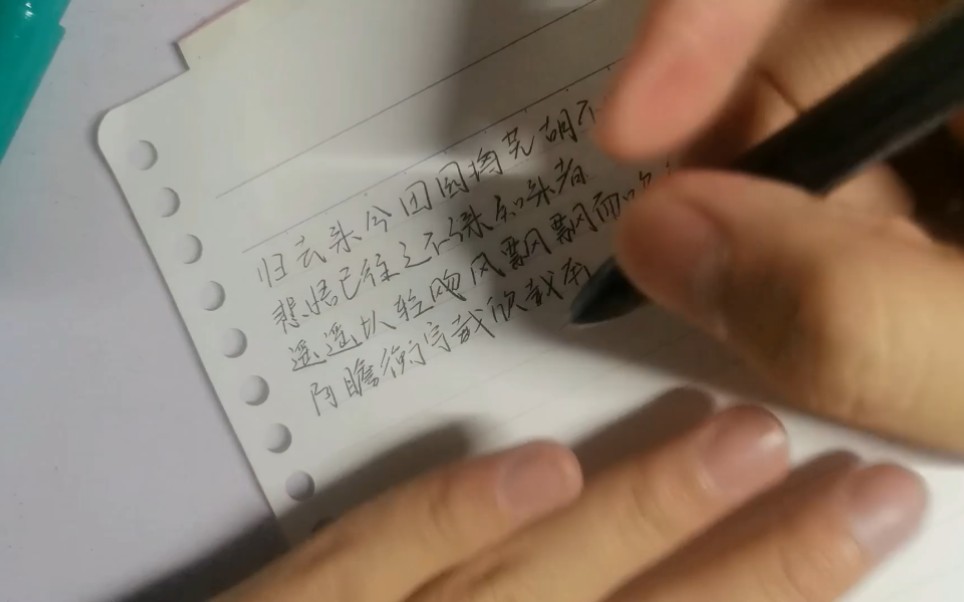 归去来兮田园将芜胡不
悲悟已往之不谏知来者
遥遥以轻飏风飘飘而吹
瞻衡宇载欣载奔